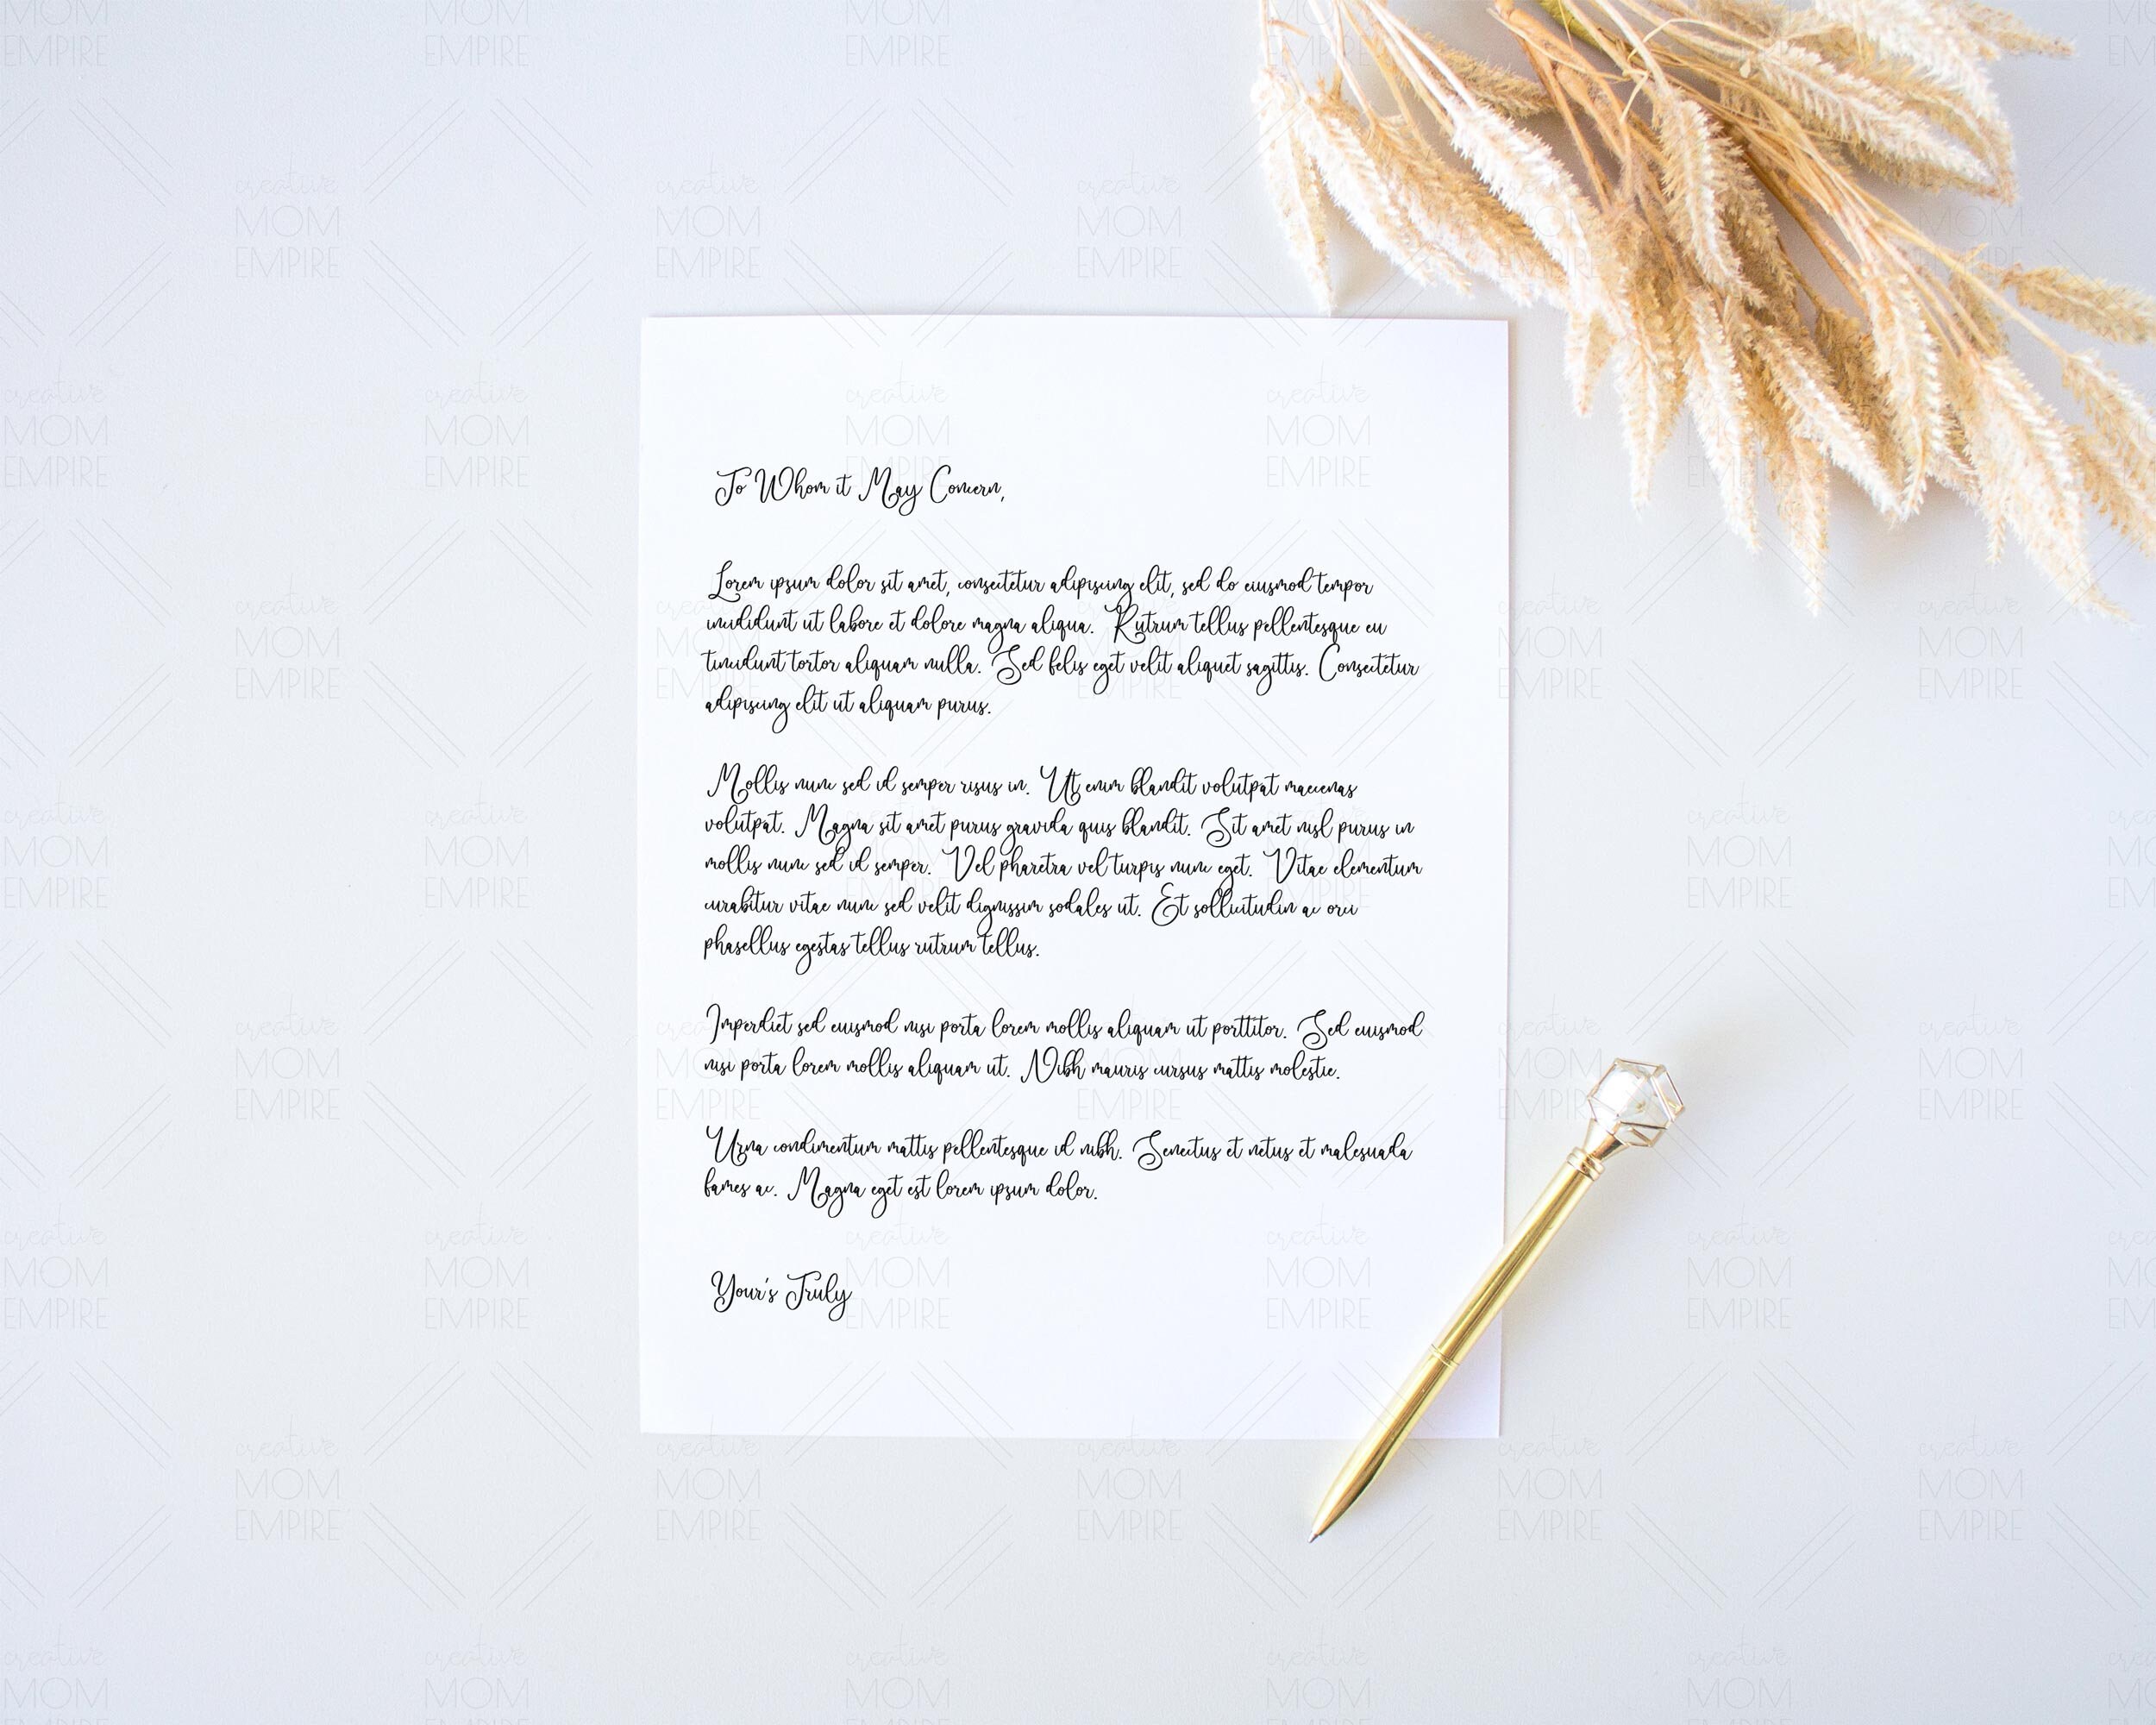 To Whom it May Concern,
Lorem ipsum dolor sit amet, consectetur adipiscing elit, sed do eiusmod tempor
incididunt ut labore et dolore magna aliqua. Rutrum tellus pellentesque eu
tincidunt tortor aliquam nulla. Sed felis eget velit aliquet sagittis. Consectetur
adipiscing elit ut aliquam purus.
Mollis nunc sed id semper risus in. Ut enim blandit volutpat maecenas
volutpat. Magna sit amet purus gravida quis blandit. Sit amet nisl purus in
mollis nunc sed id semper. Vel pharetra vel turpis nunc eget. Vitae elementum
curabitur vitae nunc sed velit dignissim sodales ut. Et sollicitudin ac orci
phasellus egestas tellus rutrum tellus.
Imperdiet sed euismod nisi porta lorem mollis aliquam ut porttitor. Sed euismod
nisi porta lorem mollis aliquam ut. Nibh mauris cursus mattis molestie.
Urna condimentum mattis pellentesque id nibh. Senectus et netus et malesuada
fames ac. Magna eget est lorem ipsum dolor.
Your's Truly
creative
MOM
EMPIRE